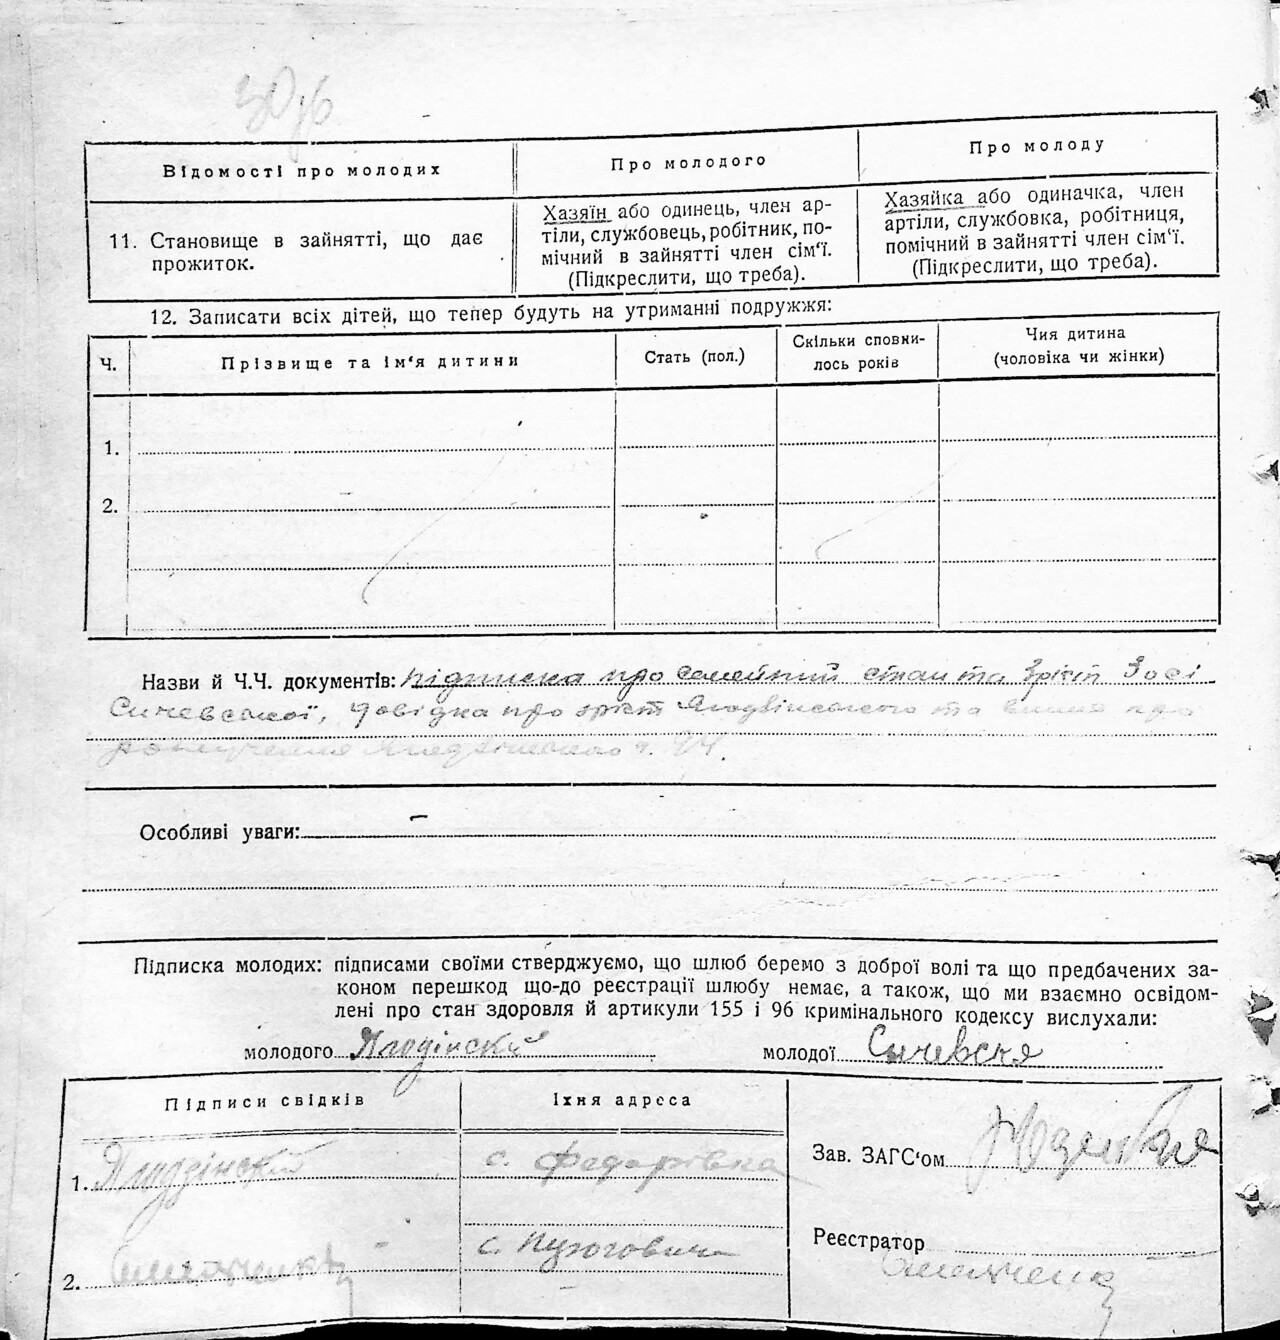 Відомості про молодих
Про молодого
Про молоду
11. Становище в зайнятті, що дає
прожиток.
Хазяїн або одинець, член ар-
тіли, службовець, робітник, по-
мічний в зайнятті член сім'ї.
(Підкреслити, що треба).
Хазяйка або одиначка, член
артіли, службовка, робітниця,
помічний в зайнятті член сім'ї.
(Підкреслити, що треба).
12. Записати всіх дітей, що тепер будуть на утриманні подружжя:
Ч.
Прізвище та ім'я дитини
Стать (пол.)
Скільки сповни-
лось років
Чия дитина
(чоловіка чи жінки)
1.
2.
Назви й Ч.Ч. документів: підписка про семейний стан та зріст Зосі
Сичевської, довідка про зріст та про
Особливі уваги: –
Підписка молодих: підписами своїми стверджуємо, що шлюб беремо з доброї волі та що предбачених за-
коном перешкод що-до реєстрації шлюбу немає, а також, що ми взаємно освідом-
лені про стан здоровля й артикули 155 і 96 кримінального кодексу вислухали:
молодого
молодої Сичевская
Підписи свідків
Їхня адреса
1.
с. Федорівка
Зав. ЗАГС'ом
2.
с.
Реєстратор